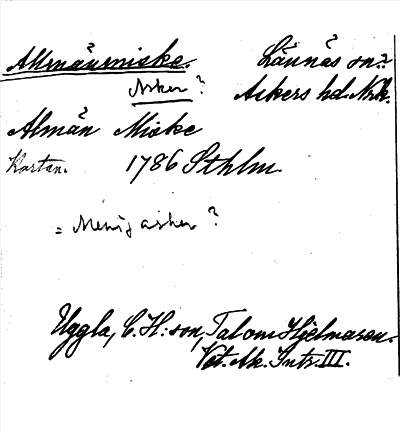 Allmänmiske. Lännäs sn?
Asker? Askers hd. Nrk.
Almän Miske
Kartan. 1786 Sthlm.
= asker?
Uggla, C. H:son, Tal om Hjelmaren.
Vet. Ak. Intr. III.